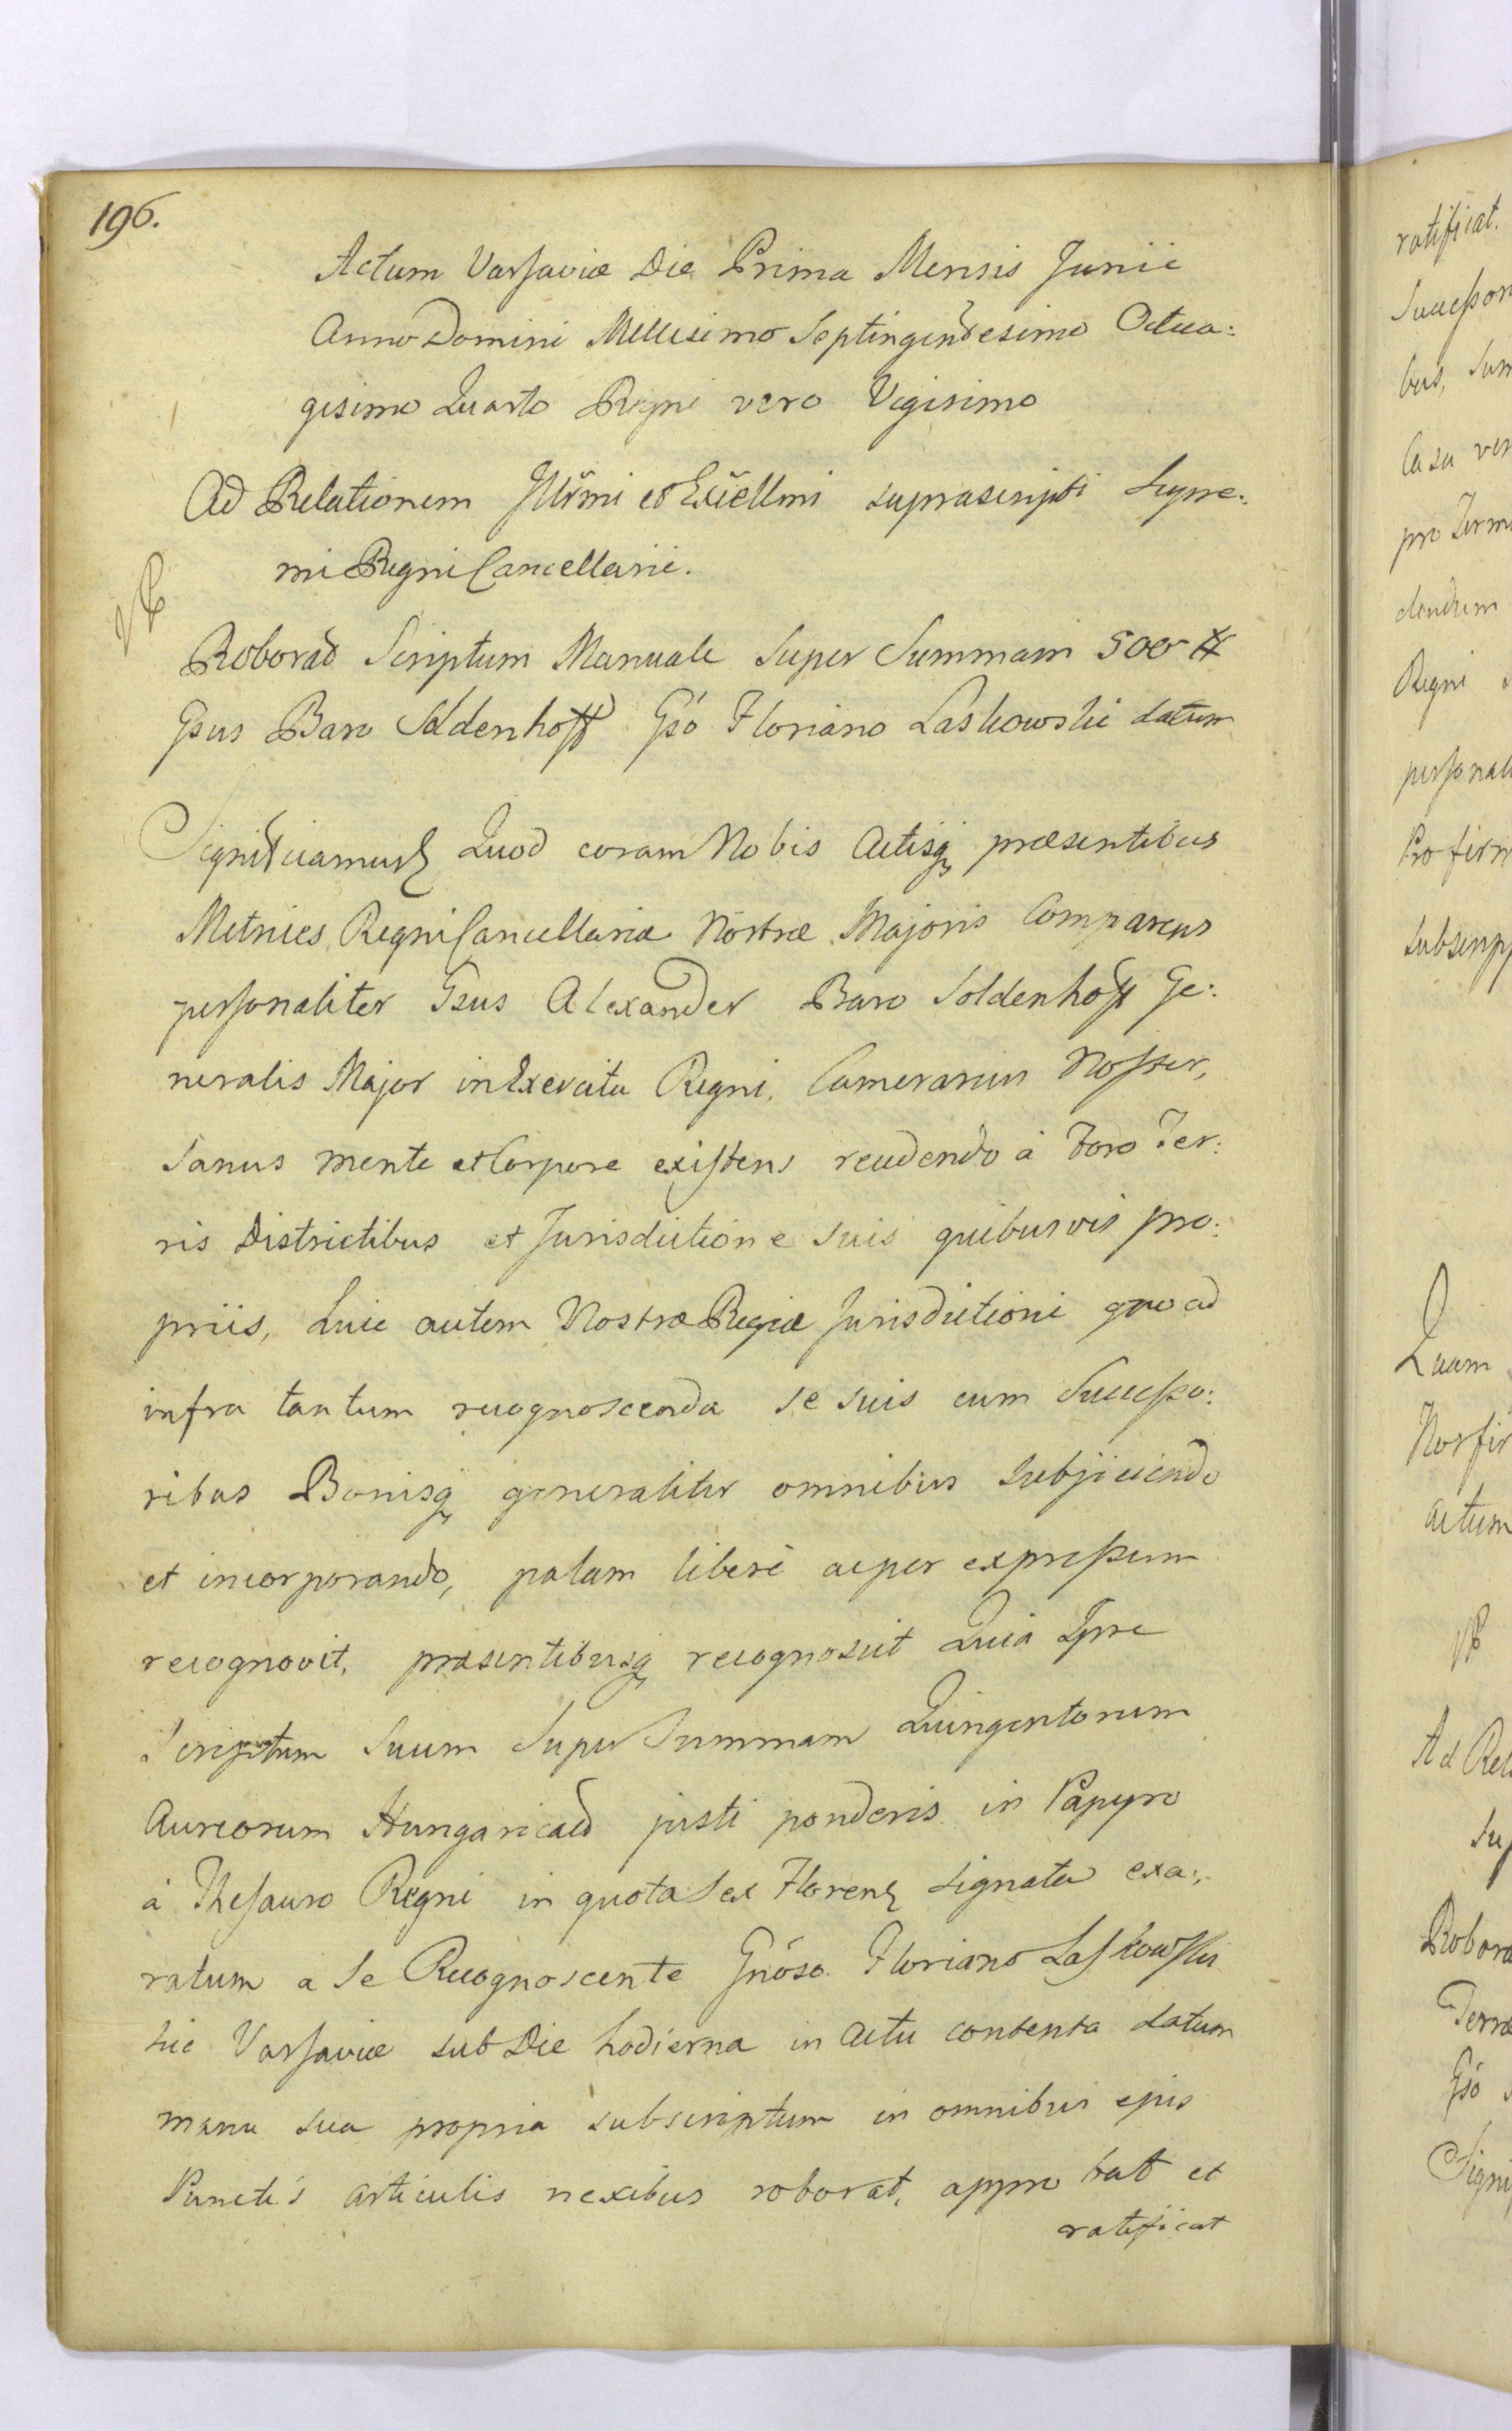 196.
Actum Varsaviæ Die Prima Mensis Junii
Anno Domini Millesimo Septingendesimo Octua:
gesimo Quarto Regni vero Vigisimo
Ad Relationem Illr̃mi et Excellmi suprascripti Supre:
mi Regni Cancellarii.
Roborad Scriptum Manuale Super Summam 500 #
Gsus Baro Soldenhoff Gsó Floriano Laskowski datum
Significamus Quod coram Nobis Actisq præsentibus
Metrices Regni Cancellariæ Nostræ Majoris Comparens
personaliter Gsus Alexander Baro Soldenhoff Ge:
neralis Major in Exercitu Regni, Camerarius Noster,
Sanus mente et Corpore existens recedendo à Foro Ter:
ris Districtibus et Jurisdictione suis quibusvis pro:
priis, huic autem Nostræ Regiæ Jurisdictioni quoad
infra tantum recognoscenda se suis cum Successo:
ribus Bonisq generaliter omnibus subjiciendo
et incorporando, palam liberè acper expressum
recognovit, præsentibusq recognoscit Quia Ipse
Scriptum Suum Super Summam Quingentorum
Aureorum Hungaricad justi ponderis in Papyro
à Thesauro Regni in quota Sex Floren signata exa:
ratum a Se Recognoscente Gnóso Floriano Laskowski
hic Varsaviæ sub Die hodierna in Actu contenta datum
manu sua propria subscriptum in omnibus ejus
Punctis articulis nexibus roborat, approbat et
ratificat
ratificat.
Successor
bus,
Casu
pro Term
dendum
Regni
personali
Pro
subscrip
Quam
Nos
actum
Ad Rela
Sup
Robora
Terræ
Gsó
Signi